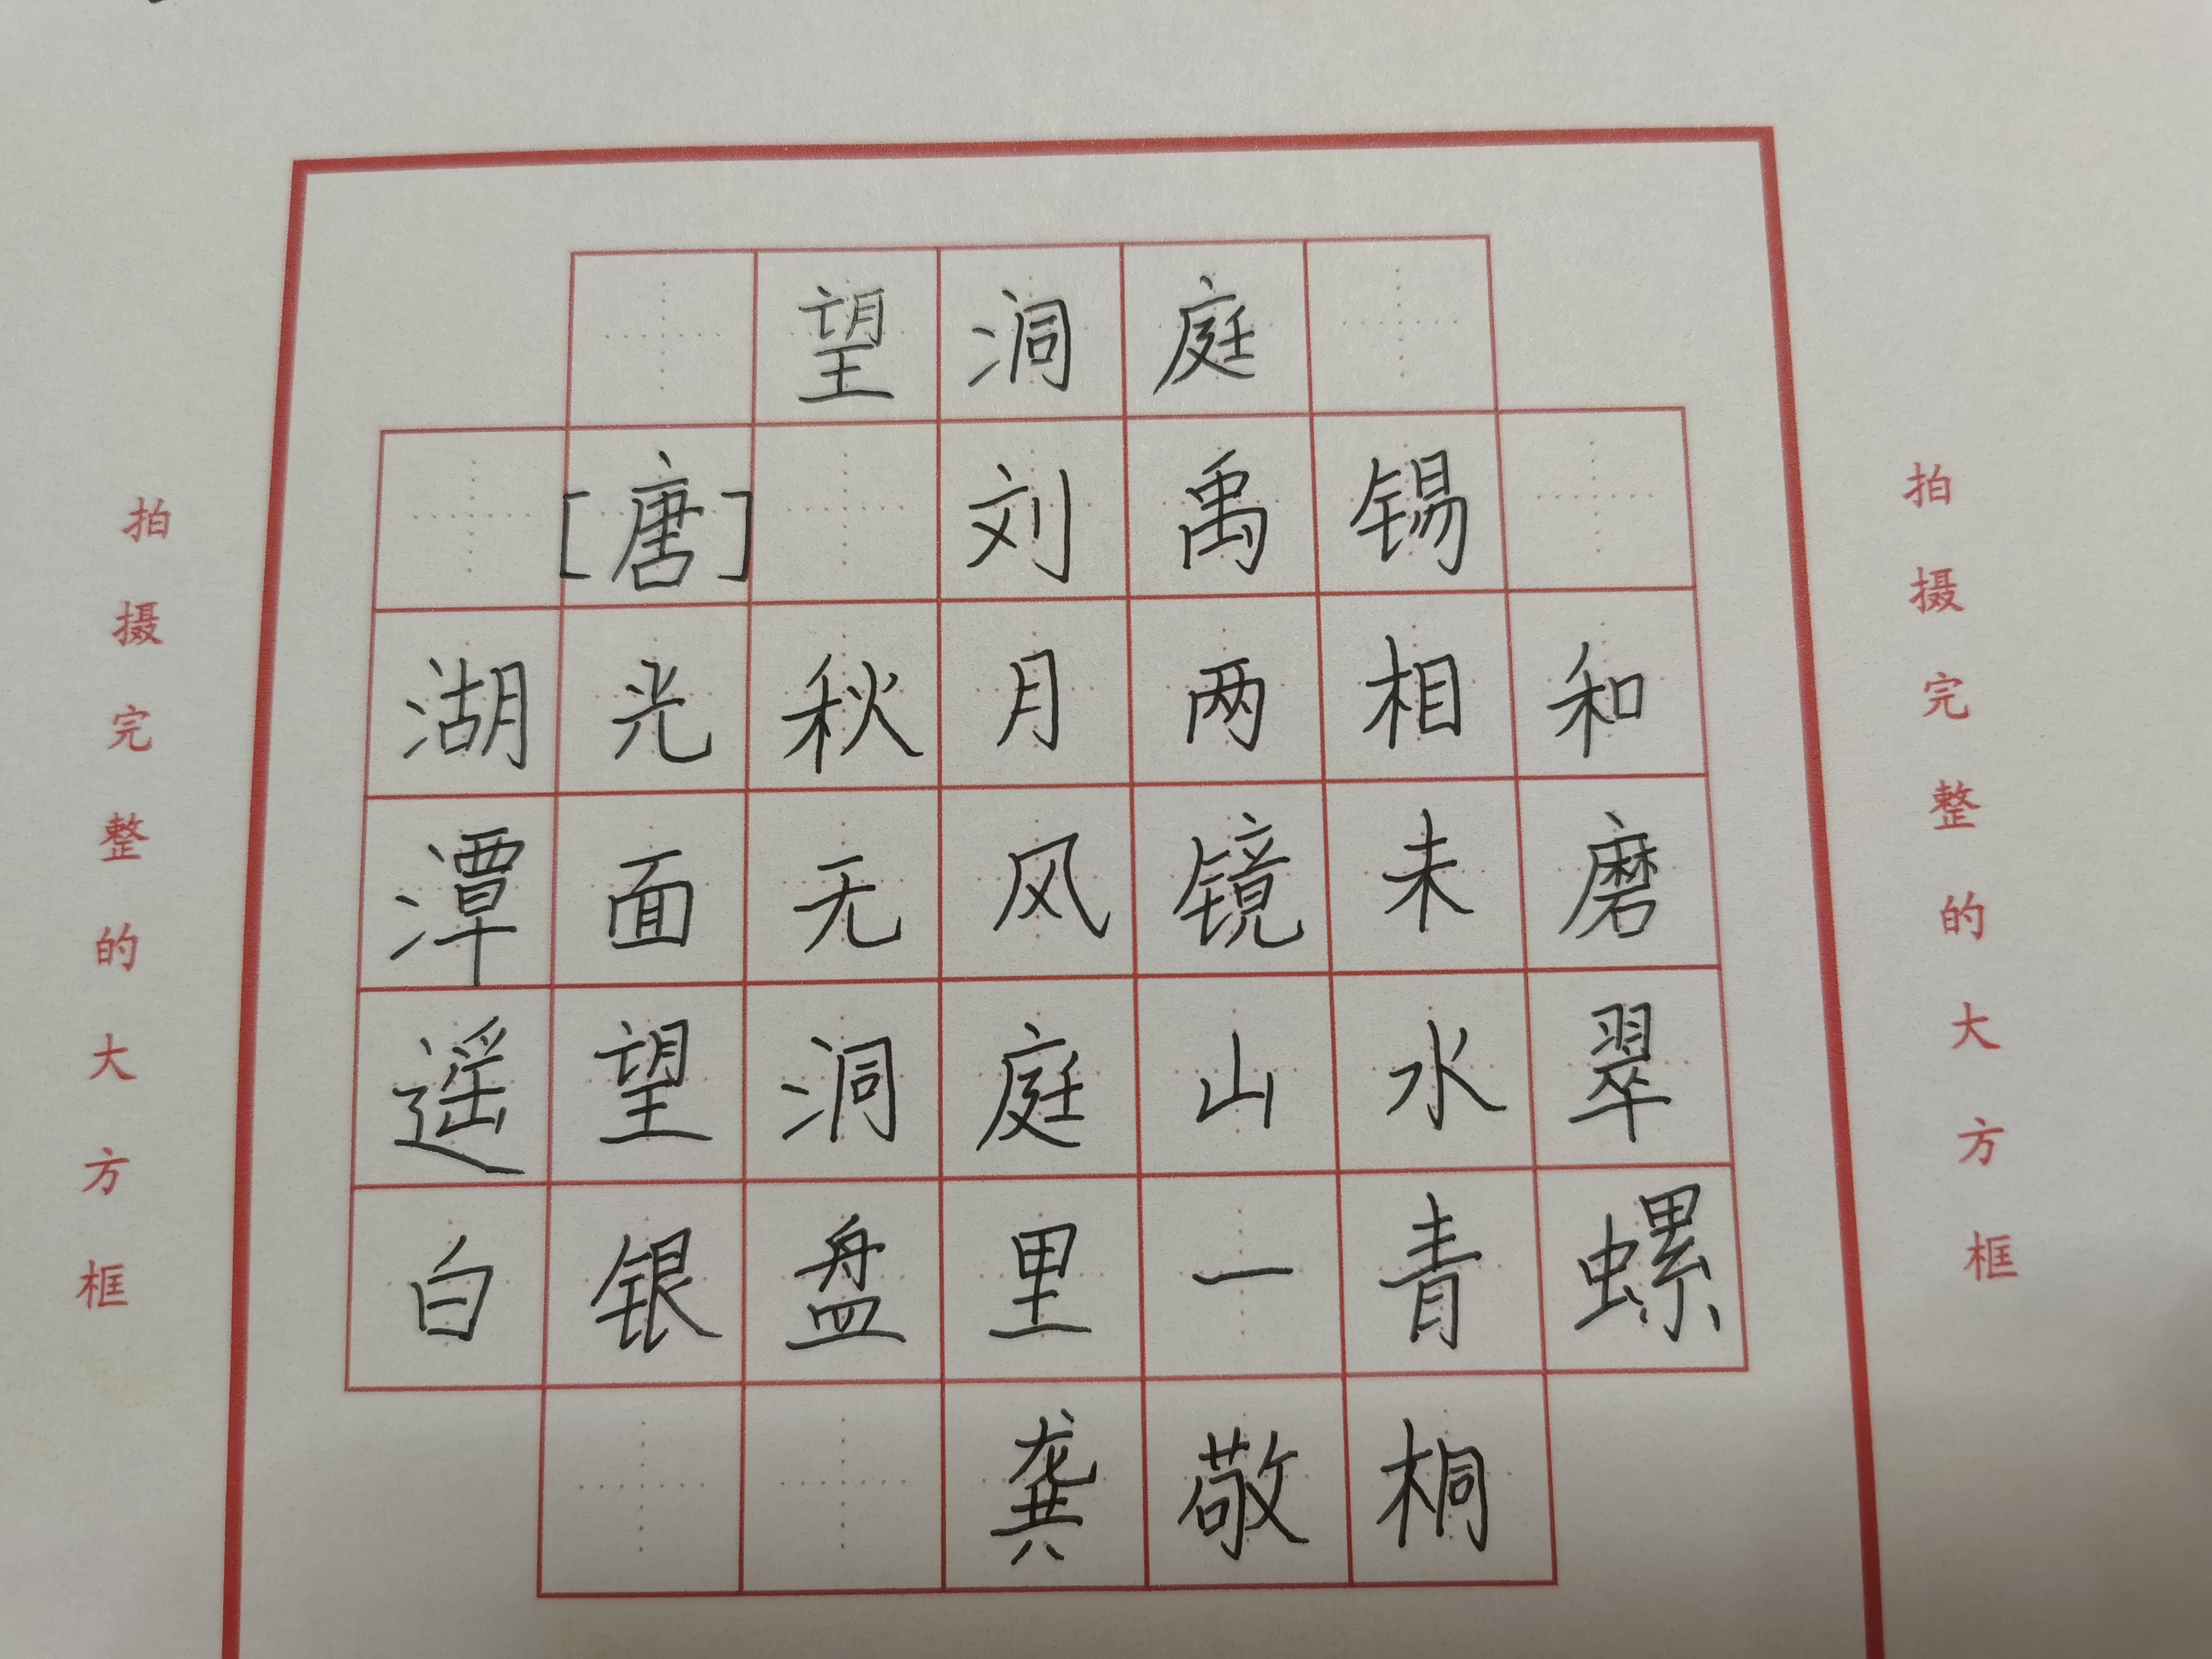 望洞庭
[唐] 刘禹锡
湖光秋月两相和
潭面无风镜未磨
遥望洞庭山水翠
白银盘里一青螺
龚敬桐
拍摄完整的大方框
拍摄完整的大方框